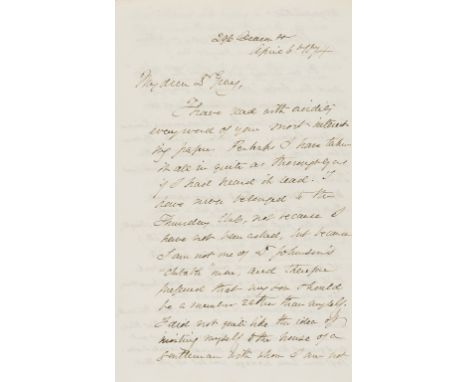 296 Beacon St
April 6th 1874
My dear Dr Gray,
I have read with avidity
every word of your most interest-
ing paper. Perhaps I have taken
it all in quite as thoroughly as
if I had heard it read. I
have never belonged to the
Thursday Club, not because I
have not been asked, but because
I am not one of Dr Johnson's
clubable men, and therefore
preferred that my son should
be a member rather than myself.
I did not quite like the idea of
inviting myself to the house of a
gentleman with whom I am not